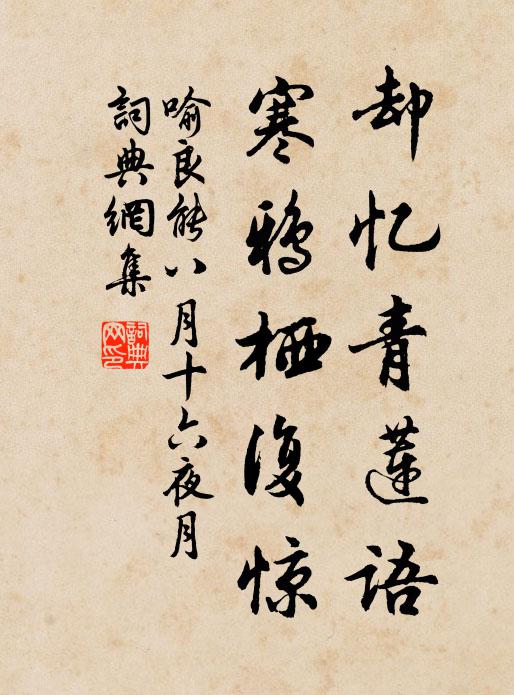 却忆青莲语
寒鸦栖复惊
喻良能八月十六夜月
詞典網集
詞典網印